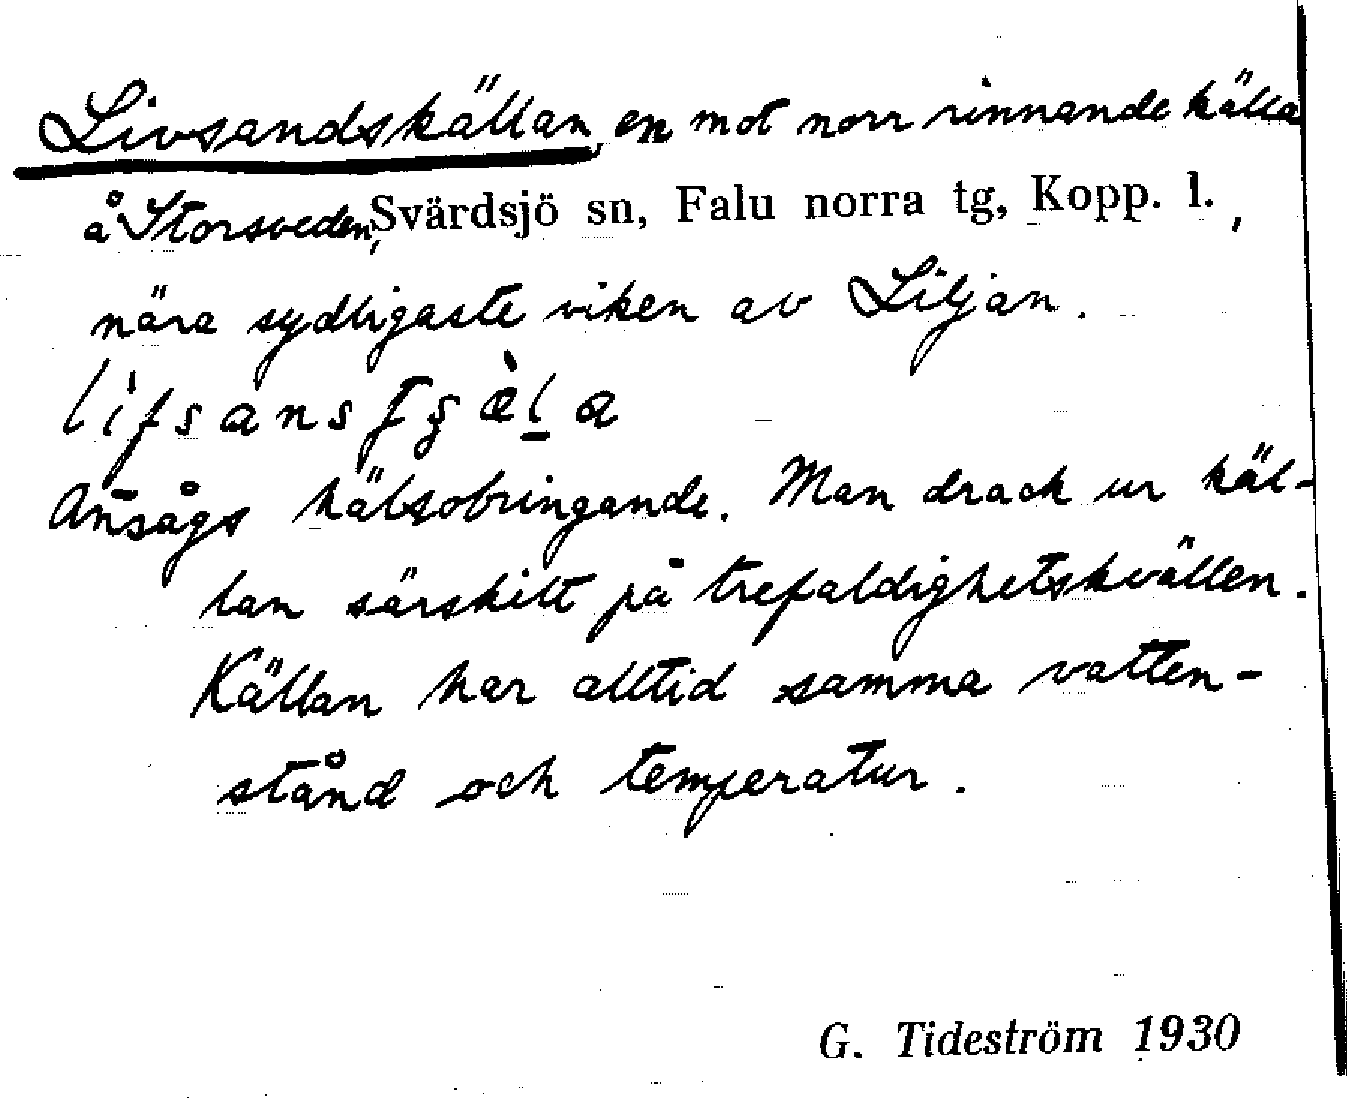 Livsandskällan, en mot norr rinnande källa
å Storsveden, Svärdsjö sn, Falu norra tg, Kopp. l.,
nära sydligaste viken av Liljan.
Ansågs hälsobringande. Man drack ur käl-
lan särskilt på trefaldighetskvällen.
Källan har alltid samma vatten-
stånd och temperatur.
G. Tideström 1930